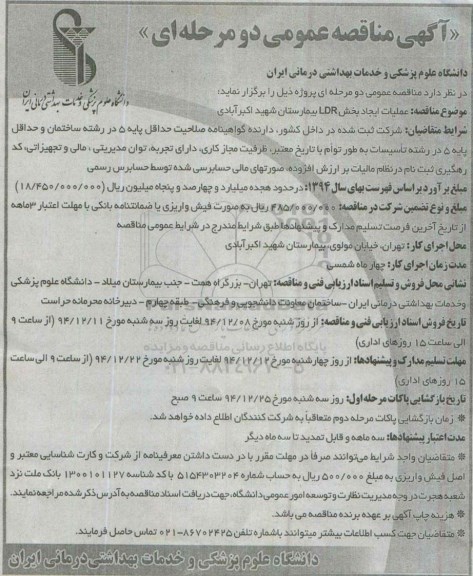 «آگهی مناقصه عمومی دو مرحله ای»
دانشگاه علوم پزشکی و خدمات بهداشتی درمانی ایران
دانشگاه علوم پزشکی و خدمات بهداشتی درمانی ایران
در نظر دارد مناقصه عمومی دو مرحله ای پروژه ذیل را برگزار نماید:
موضوع مناقصه: عملیات ایجاد بخش LDR بیمارستان شهید اکبرآبادی
شرایط متقاضیان: شرکت ثبت شده در داخل کشور، دارنده گواهینامه صلاحیت حداقل پایه ۵ در رشته ساختمان و حداقل
پایه ۵ در رشته تأسیسات به طور توأم با تاریخ معتبر، ظرفیت مجاز کاری، دارای تجربه، توان مدیریتی ، مالی و تجهیزاتی، کد
رهگیری ثبت نام درنظام مالیات بر ارزش افزوده، صورتهای مالی حسابرسی شده توسط حسابرس رسمی
مبلغ بر آورد بر اساس فهرست بهای سال ۱۳۹۴: در حدود هجده میلیارد و چهارصد و پنجاه میلیون ریال (۱۸/۴۵۰/۰۰۰/۰۰۰)
مبلغ و نوع تضمین شرکت در مناقصه: ۴۸۵/۰۰۰/۰۰۰ ریال به صورت فیش واریزی یا ضمانتنامه بانکی با مهلت اعتبار ۳ماهه
از تاریخ آخرین فرصت تسلیم مدارک و پیشنهادها طبق شرایط مندرج در شرایط عمومی مناقصه
محل اجرای کار: تهران، خیابان مولوی، بیمارستان شهید اکبرآبادی
مدت زمان اجرای کار: چهار ماه شمسی
نشانی محل فروش و تسلیم اسناد ارزیابی فنی و مناقصه: تهران- بزرگراه همت - جنب بیمارستان میلاد - دانشگاه علوم پزشکی
وخدمات بهداشتی درمانی ایران -ساختمان معاونت دانشجویی و فرهنگی- طبقه چهارم - دبیرخانه محرمانه حراست
تاریخ فروش اسناد ارزیابی فنی و مناقصه: از روز شنبه مورخ ۹۴/۱۲/۰۸ لغایت روز سه شنبه مورخ ۹۴/۱۲/۱۱ (از ساعت ۹
الی ساعت ۱۵ روزهای اداری)
پایگاه اطلاع رسانی مناقصه و مزایده
۰۲۱-۸۸۳۴۹۶۷۰-۵
مهلت تسلیم مدارک و پیشنهادها: از روز چهارشنبه مورخ ۹۴/۱۲/۱۲ لغایت روز شنبه مورخ ۹۴/۱۲/۲۲ (از ساعت ۹ الی ساعت
۱۵ روزهای اداری)
تاریخ بازگشایی پاکات مرحله اول: روز سه شنبه مورخ ۹۴/۱۲/۲۵ ساعت ۹ صبح
* زمان بازگشایی پاکات مرحله دوم متعاقباً به شرکت کنندگان اطلاع داده خواهد شد.
مدت اعتبار پیشنهادها: سه ماهه و قابل تمدید تا سه ماه دیگر
* متقاضیان واجد شرایط می‌توانند صرفاً در مهلت مقرر با در دست داشتن معرفینامه از شرکت و کارت شناسایی معتبر و
اصل فیش واریزی به مبلغ ۵۰۰/۰۰۰ ریال به حساب شماره ۵۱۵۴۳۰۳۲۰۴ با کد شناسه ۱۳۰۰۱۰۱۱۲۷ بانک ملت نزد
شعبه هجرت در وجه مدیریت نظارت و توسعه امور عمومی دانشگاه، جهت دریافت اسناد مناقصه به آدرس ذکر شده مراجعه نمایند.
* هزینه چاپ آگهی بر عهده برنده مناقصه می باشد.
* متقاضیان جهت کسب اطلاعات بیشتر میتوانند باشماره تلفن ۸۶۷۰۲۴۲۵-۰۲۱ تماس حاصل فرمایند.
دانشگاه علوم پزشکی و خدمات بهداشتی درمانی ایران